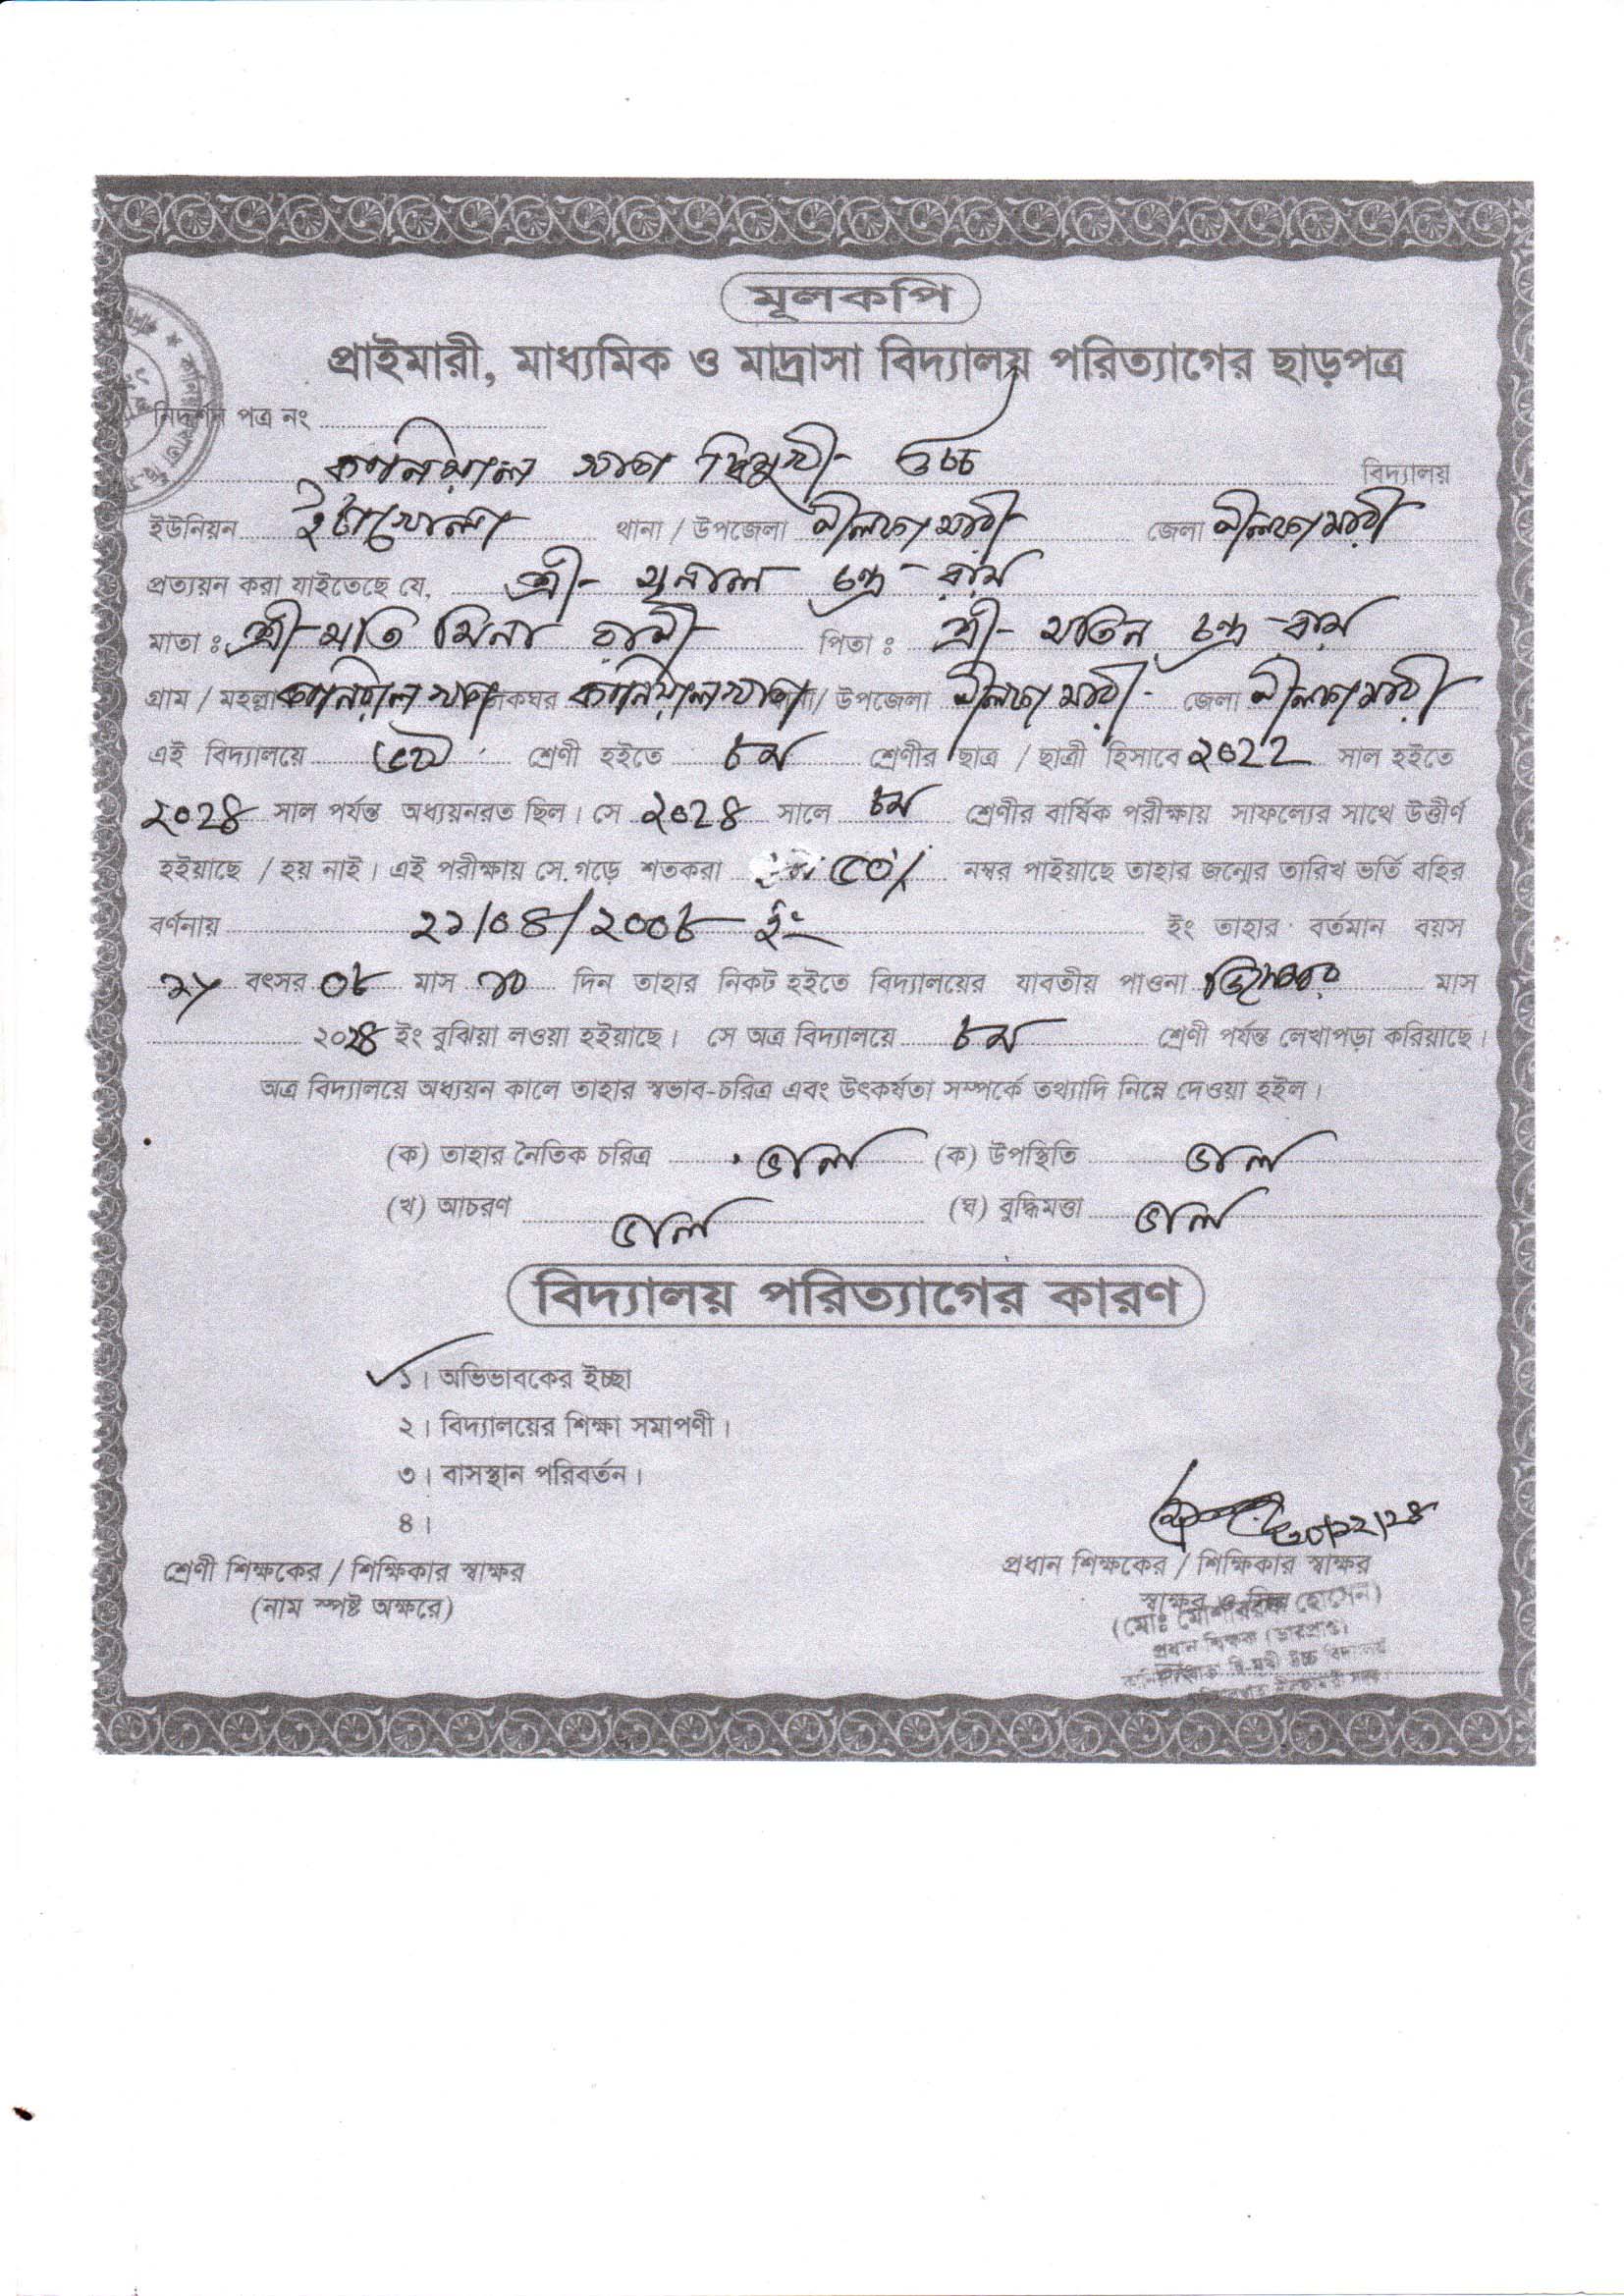 মূলকপি
প্রাইমারী, মাধ্যমিক ও মাদ্রাসা বিদ্যালয় পরিত্যাগের ছাড়পত্র
নিদর্শন পত্র নং
কানিয়াল খাতা দ্বিমুখী উচ্চ বিদ্যালয়
ইউনিয়ন ইটাখোলা থানা / উপজেলা নীলফামারী জেলা নীলফামারী
প্রত্যয়ন করা যাইতেছে যে, শ্রী- মৃনাল চন্দ্র রায়
মাতা : শ্রীমতি মিনা রানী পিতা : শ্রী- যতিন চন্দ্র রায়
গ্রাম / মহল্লা কানিয়াল খাতা ডাকঘর কানিয়াল খাতা থানা/ উপজেলা নীলফামারী জেলা নীলফামারী
এই বিদ্যালয়ে ৬ষ্ঠ শ্রেণী হইতে ৮ম শ্রেণীর ছাত্র / ছাত্রী হিসাবে ২০২২ সাল হইতে
২০২৪ সাল পর্যন্ত অধ্যয়নরত ছিল। সে ২০২৪ সালে ৮ম শ্রেণীর বার্ষিক পরীক্ষায় সাফল্যের সাথে উত্তীর্ণ
হইয়াছে / হয় নাই। এই পরীক্ষায় সে. গড়ে শতকরা ৫০% নম্বর পাইয়াছে তাহার জন্মের তারিখ ভর্তি বহির
বর্ণনায় ২১/০৪/২০০৮ ইং ইং তাহার বর্তমান বয়স
বৎসর ০৮ মাস ১০ দিন তাহার নিকট হইতে বিদ্যালয়ের যাবতীয় পাওনা ডিসেম্বর মাস
২০২৪ ইং বুঝিয়া লওয়া হইয়াছে। সে অত্র বিদ্যালয়ে ৮ম শ্রেণী পর্যন্ত লেখাপড়া করিয়াছে।
অত্র বিদ্যালয়ে অধ্যয়ন কালে তাহার স্বভাব-চরিত্র এবং উৎকর্ষতা সম্পর্কে তথ্যাদি নিম্নে দেওয়া হইল।
(ক) তাহার নৈতিক চরিত্র ভাল (ক) উপস্থিতি ভাল
(খ) আচরণ ভাল (ঘ) বুদ্ধিমত্তা ভাল
বিদ্যালয় পরিত্যাগের কারণ
১। অভিভাবকের ইচ্ছা
২। বিদ্যালয়ের শিক্ষা সমাপণী।
৩। বাসস্থান পরিবর্তন।
৪।
৩০/১২/২৪
শ্রেণী শিক্ষকের / শিক্ষিকার স্বাক্ষর প্রধান শিক্ষকের / শিক্ষিকার স্বাক্ষর
(নাম স্পষ্ট অক্ষরে) স্বাক্ষর ও সিল
(মোঃ মোশাররফ হোসেন)
প্রধান শিক্ষক (ভারপ্রাপ্ত)
দ্বি-মুখী উচ্চ বিদ্যালয়